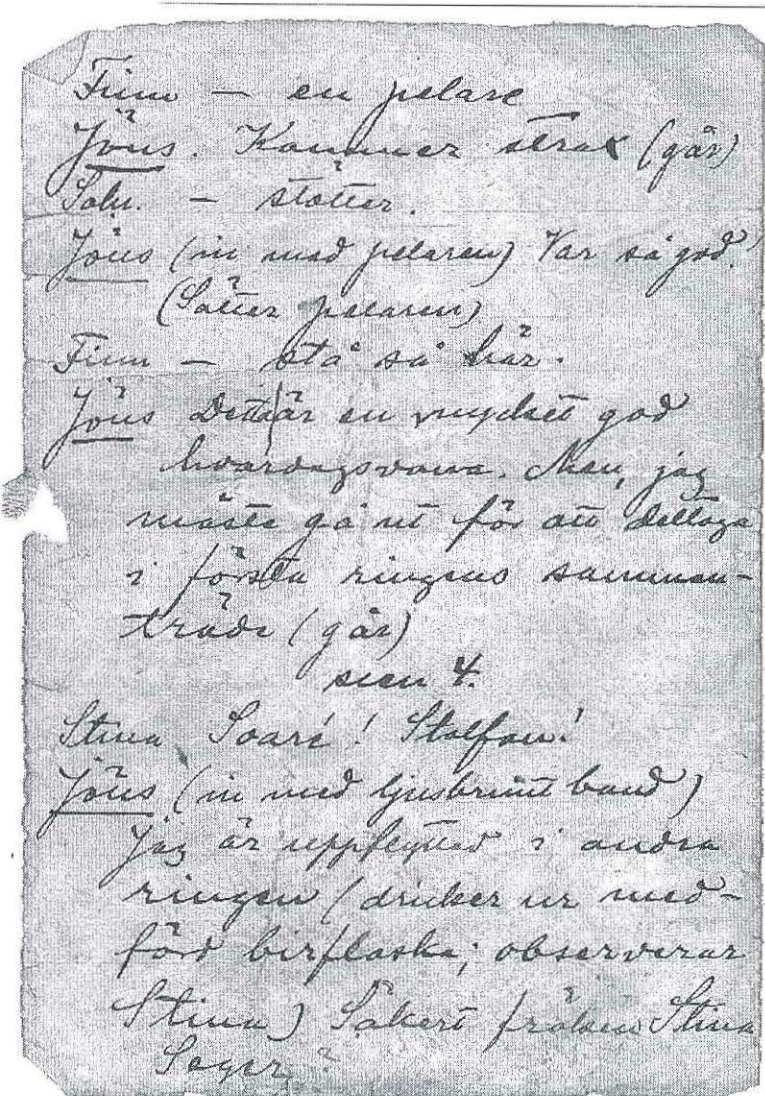 Finn — en pelare
Jöns. Kommer strax (går)
Soln. — stötter.
Jöns (in med pelaren) Var så god.
(Sätter pelaren)
Finn — stå så här.
Jöns Detta är en mycket god
hvardagsvara. Men, jag
måste gå ut för att deltaga
i första ringens samman-
träde (går)
scen 4.
Stina Soaré! Staffan!
Jöns (in med ljusbrunt band)
Jag är uppflyttad i andra
ringen (dricker ur med-
förd birflaska; observerar
Stina) Säkert fröken Stina
Seger?